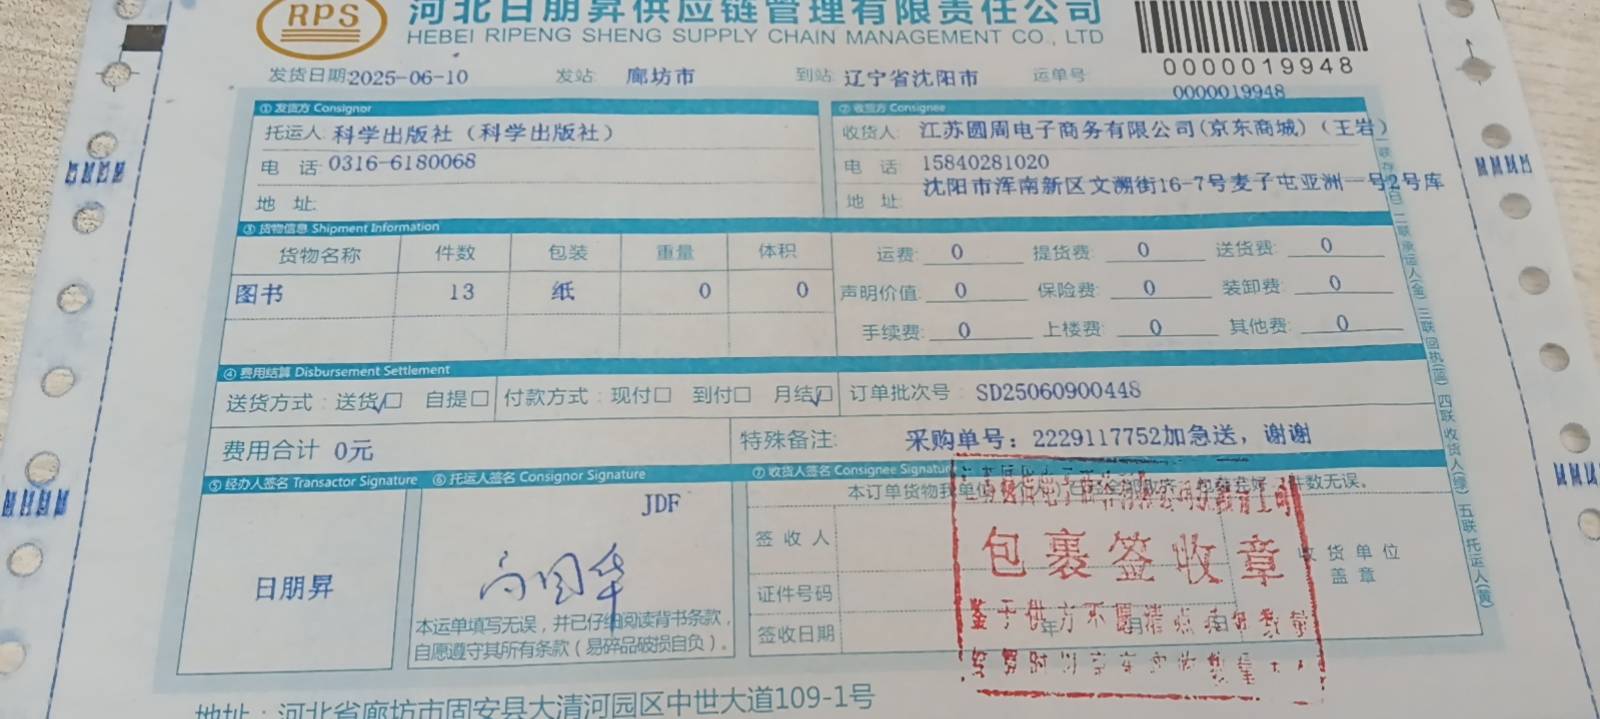 RPS
河北日朋昇供应链管理有限责任公司
HEBEI RIPENG SHENG SUPPLY CHAIN MANAGEMENT CO., LTD
0000019948
发货日期:2025-06-10 发站 廊坊市 到站: 辽宁省沈阳市 运单号:
0000019948
① 发货方 Consignor ② 收货方 Consignee
托运人 科学出版社（科学出版社） 收货人: 江苏圆周电子商务有限公司(京东商城)（王岩）
电 话 0316-6180068 电 话: 15840281020
地 址: 地 址: 沈阳市浑南新区文溯街16-7号麦子屯亚洲一号2号库
③ 货物信息 Shipment Information
货物名称 件数 包装 重量 体积 运费: 0 提货费: 0 送货费: 0
图书 13 纸 0 0 声明价值: 0 保险费: 0 装卸费: 0
手续费: 0 上楼费: 0 其他费: 0
④ 费用结算 Disbursement Settlement
送货方式：送货☑ 自提□ 付款方式：现付□ 到付□ 月结☑ 订单批次号 SD25060900448
费用合计 0元 特殊备注: 采购单号：2229117752加急送，谢谢
⑤ 经办人签名 Transactor Signature ⑥ 托运人签名 Consignor Signature ⑦ 收货人签名 Consignee Signatur
本订单货物我单位 件数无误。
JDF
签 收 人
包裹签收章
收货单位
盖章
日朋昇
证件号码
本运单填写无误，并已仔细阅读背书条款，
自愿遵守其所有条款（易碎品破损自负）。
签收日期 年 月 日
鉴于供方不愿清点
二联承运人(金) 三联回执(蓝) 四联收货人(绿) 五联托运人(黄)
地址：河北省廊坊市固安县大清河园区中世大道109-1号